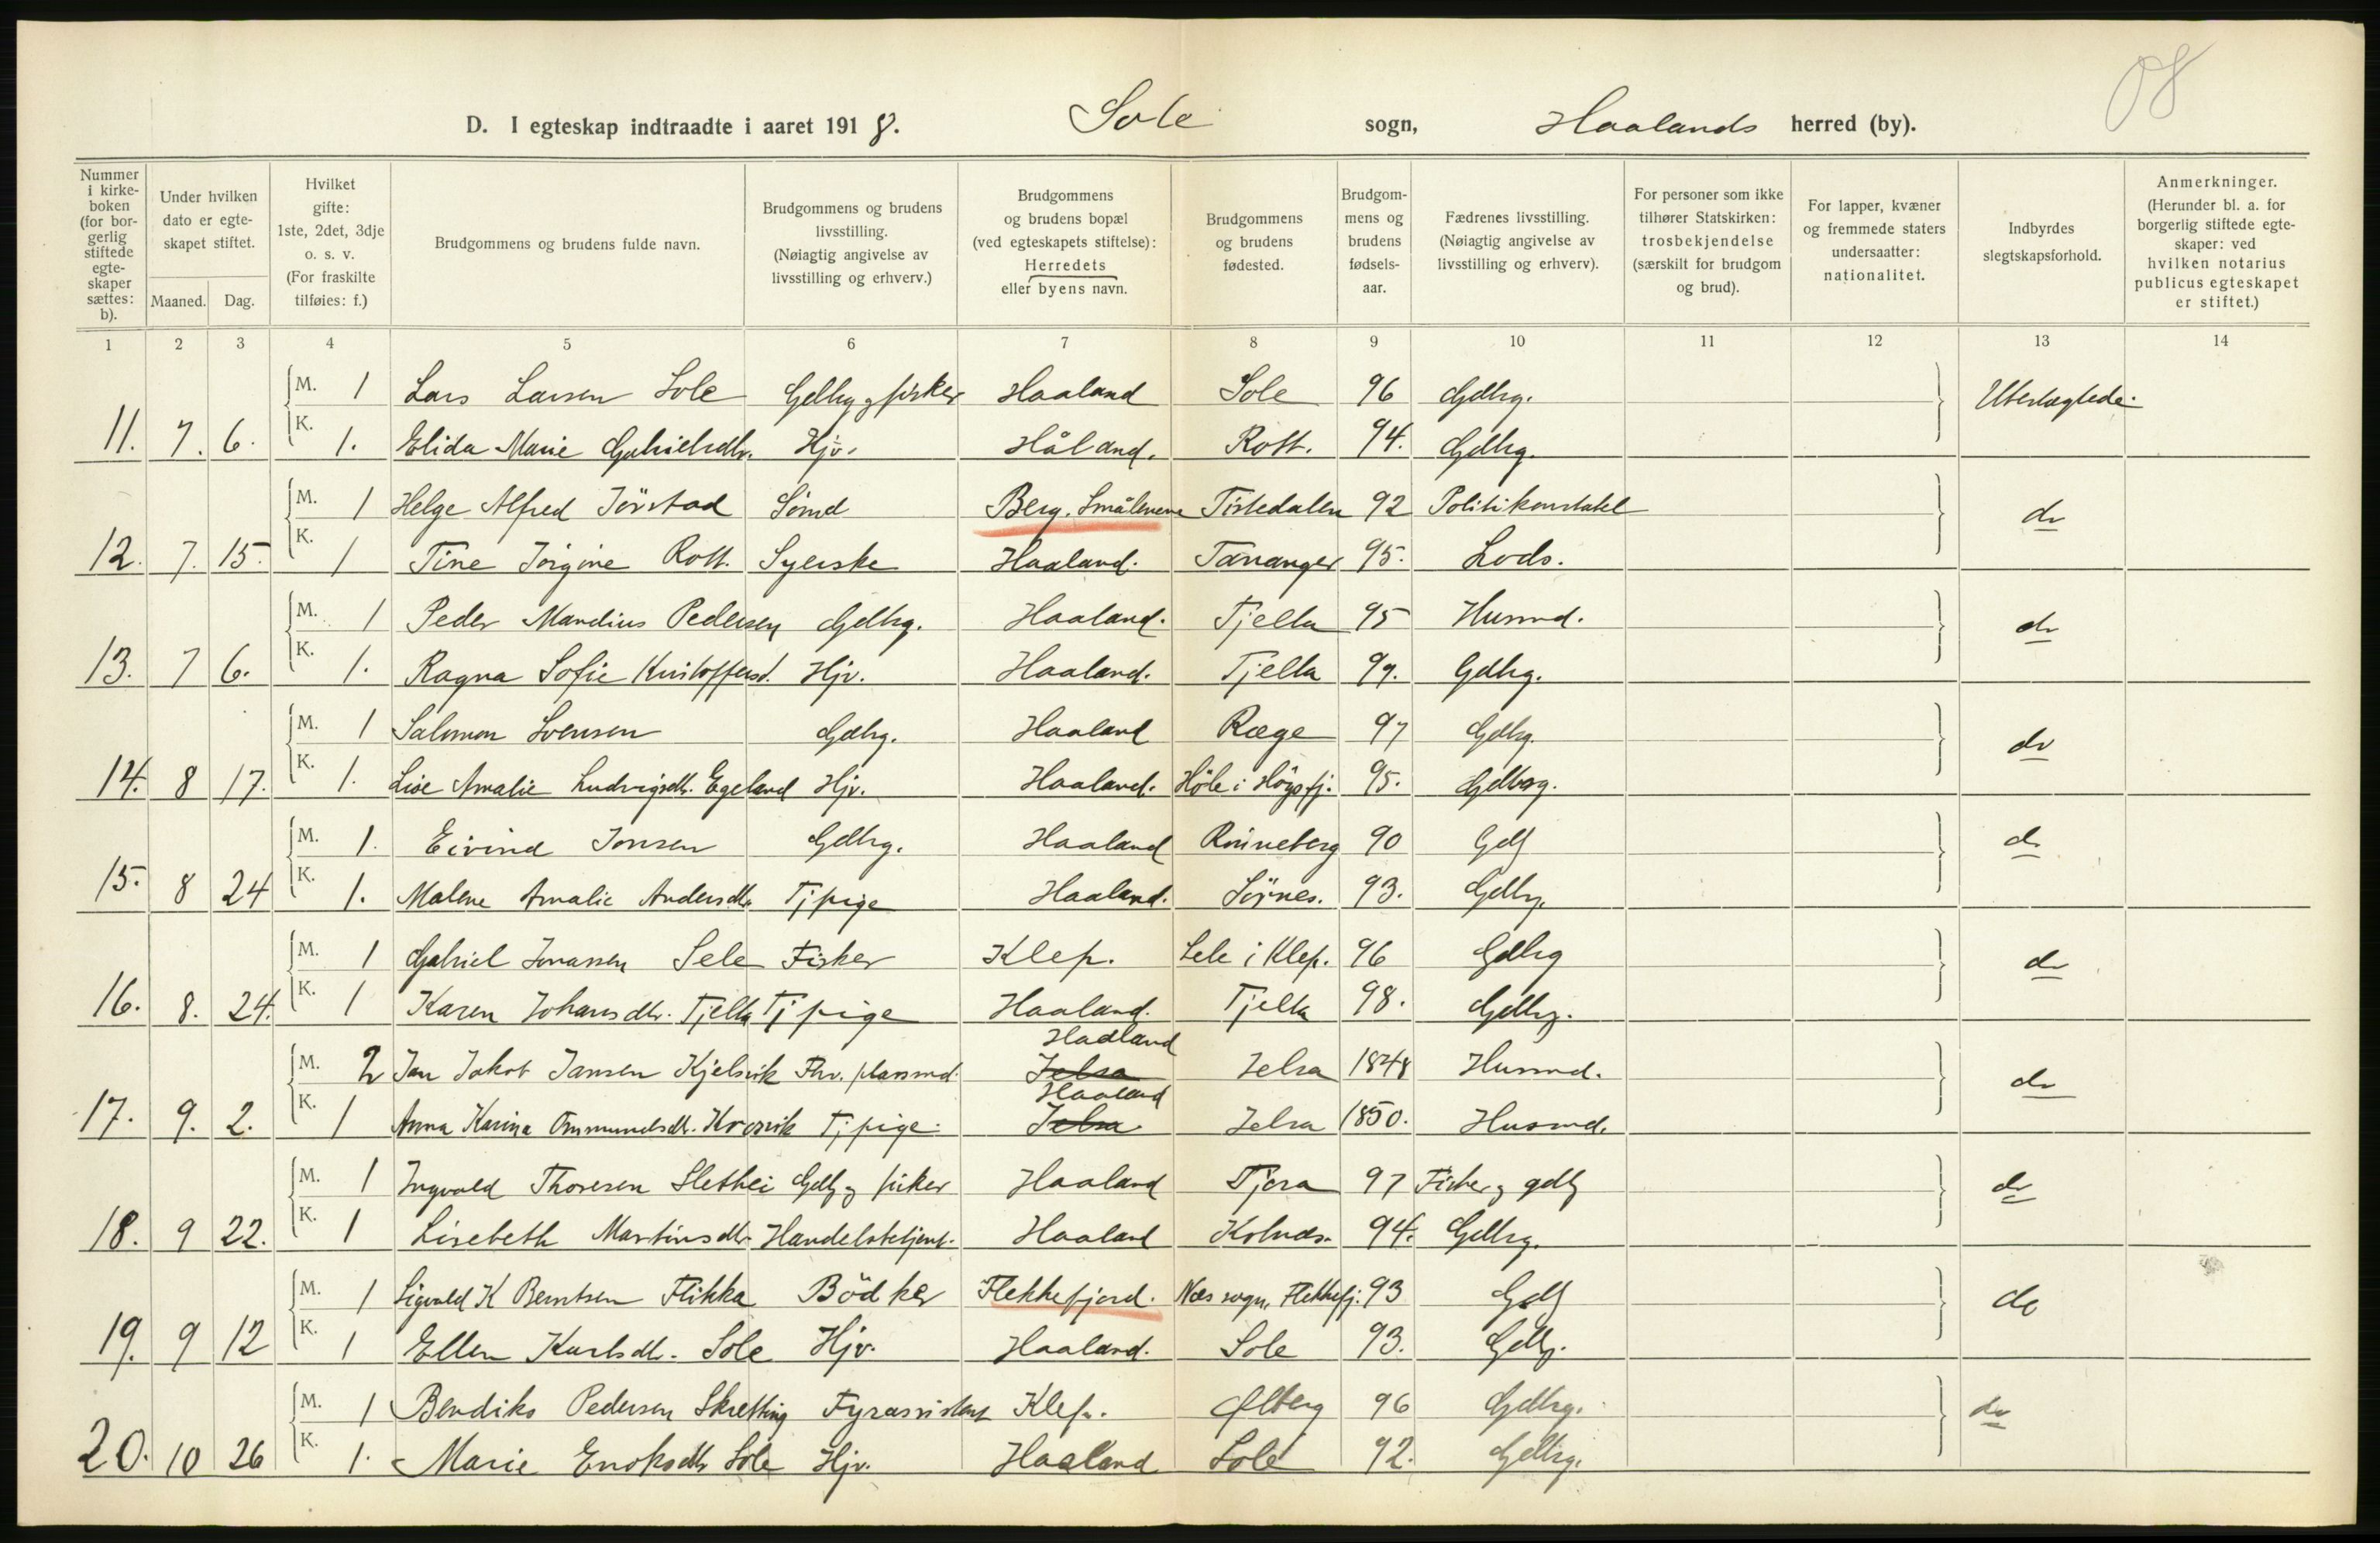 08
D. I egteskap indtraadte i aaret 1918. Sole sogn, Haalands herred (by).
Nummer i kirkeboken (for borgerlig stiftede egteskaper sættes: b).
Under hvilken dato er egteskapet stiftet.
Maaned. Dag.
Hvilket gifte: 1ste, 2det, 3dje o. s. v. (For fraskilte tilføies: f.)
Brudgommens og brudens fulde navn.
Brudgommens og brudens livsstilling. (Nøiagtig angivelse av livsstilling og erhverv.)
Brudgommens og brudens bopæl (ved egteskapets stiftelse): Herredets eller byens navn.
Brudgommens og brudens fødested.
Brudgommens og brudens fødselsaar.
Fædrenes livsstilling. (Nøiagtig angivelse av livsstilling og erhverv).
For personer som ikke tilhører Statskirken: trosbekjendelse (særskilt for brudgom og brud).
For lapper, kvæner og fremmede staters undersaatter: nationalitet.
Indbyrdes slegtskapsforhold.
Anmerkninger. (Herunder bl. a. for borgerlig stiftede egteskaper: ved hvilken notarius publicus egteskapet er stiftet.)
1 2 3 4 5 6 7 8 9 10 11 12 13 14
M. 1 Lars Larsen Sole Gdbrg og fisker Haaland Sole 96 Gdbrg. Ubeslegtede.
11. 7. 6. K. 1. Elida Marie Gabrielsdtr. Hjv. Håland. Rott. 94. Gdbrg.
M. 1 Helge Alfred Jörstad Sömd Berg. Smålenene Tistedalen 92 Politikonstabel do
12. 7. 15. K. 1 Tine Jörgine Rott. Syerske Haaland. Tananger 95. Lods.
M. 1 Peder Mandius Pedersen Gdbrg. Haaland. Tjelta 95 Husmd. do
13. 7 6. K. 1. Ragna Sofie Kristoffersd. Hjv. Haaland. Tjelta 99. Gdbrg.
M. 1 Salomon Svensen Gdbrg. Haaland Ræge 97 Gdbrg. do
14. 8 17. K. 1. Lise Amalie Ludvigsdtr. Egeland Hjv. Haaland. Höle i Högsfj. 95. Gdbrg.
M. 1. Eivind Jonsen Gdbrg. Haaland Rinneberg 90 Gdb do
15. 8 24 K. 1. Malene Amalie Andersdtr Tjpige Haaland. Sörnes. 93. Gdbrg.
M. 1 Gabriel Jonassen Sele Fisker Klep. Sele i Klep. 96 Gdbrg do
16. 8. 24. K. 1 Karen Johansdtr. Tjelta Tjpige Haaland. Tjelta 98. Gdbrg.
Haaland
M. 2 Jan Jakob Jansen Kjelsvik Fhv. plassmd. Jelsa Jelsa 1848 Husmd. do
Haaland
17. 9. 2. K. 1 Anna Karina Ommundsdtr. Krosvik Tjpige. Jelsa Jelsa 1850. Husmd.
M. 1 Ingvald Thoresen Slethei Gdb og fisker Haaland Tjora 97 Fisker og gdb do
18. 9 22. K. 1 Lisebeth Martinsdtr. Handelsbetjent. Haaland Kolnds. 94. Gdbrg.
M. 1 Sigvald K Berntsen Flikka Bödker Flekkefjord. Næs sogn, Flekkefj. 93 Gdb do
19. 9 12 K. 1 Ellen Karlsdtr. Sole Hjv. Haaland. Sole 93. Gdb.
M. 1 Bendiks Pedersen Skretting Fyrassistent Klep. Ølberg 96 Gdbrg. do
20. 10 26 K. 1. Marie Enoksdtr Sole Hjv. Haaland Sole 92. Gdbrg.